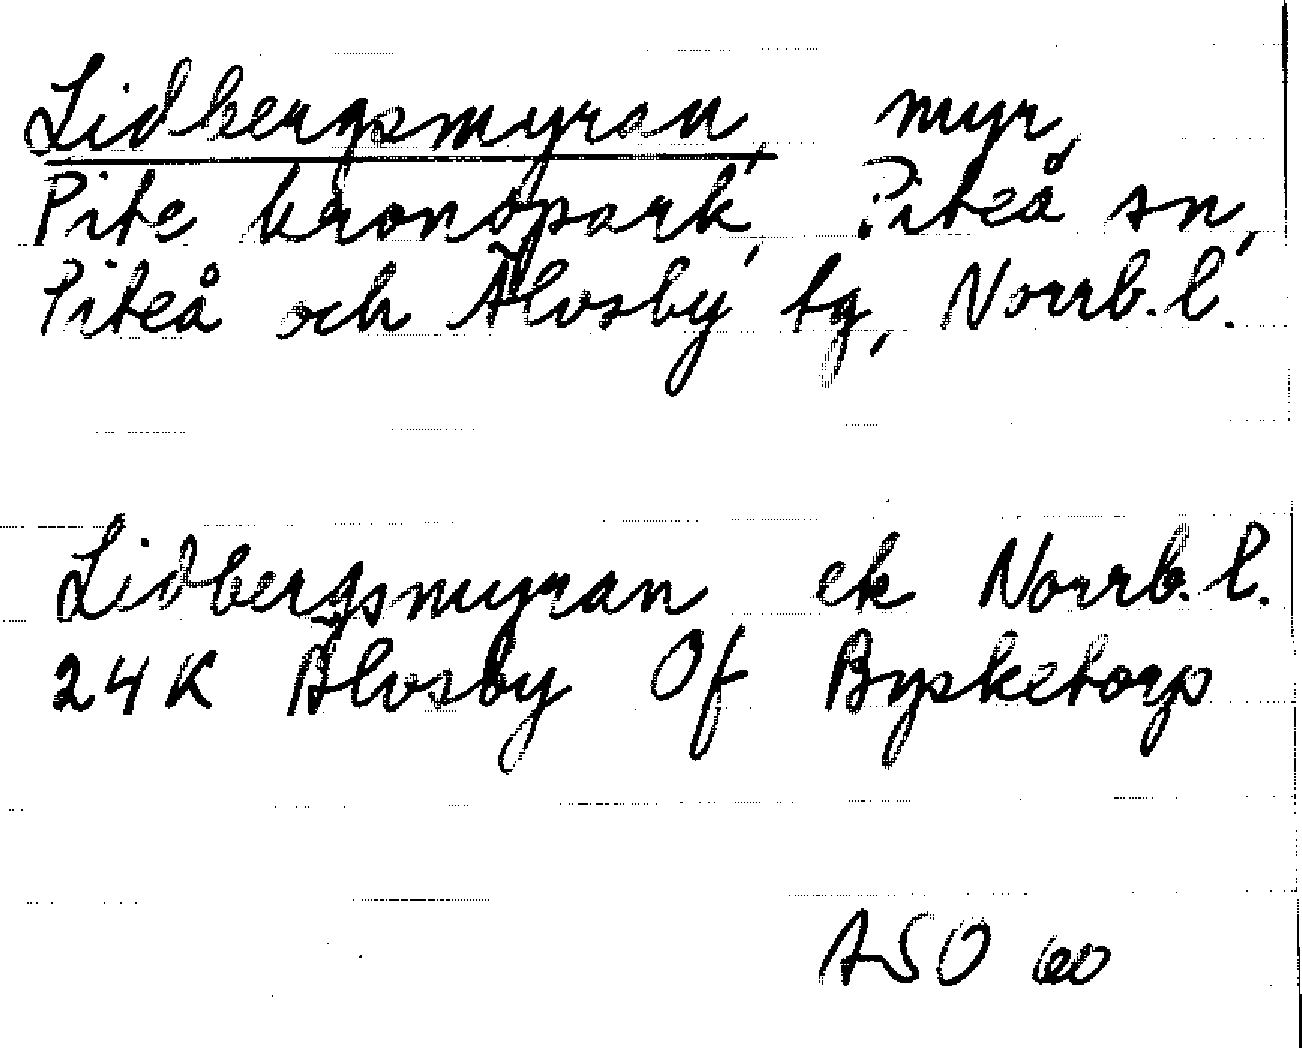 Lidbergsmyran, myr,
Pite kronopark, Piteå sn,
Piteå och Älvsby tg, Norrb.l.
Lidbergsmyran ek Norrb.l.
24K Älvsby Of Bysketorp
ASO 60